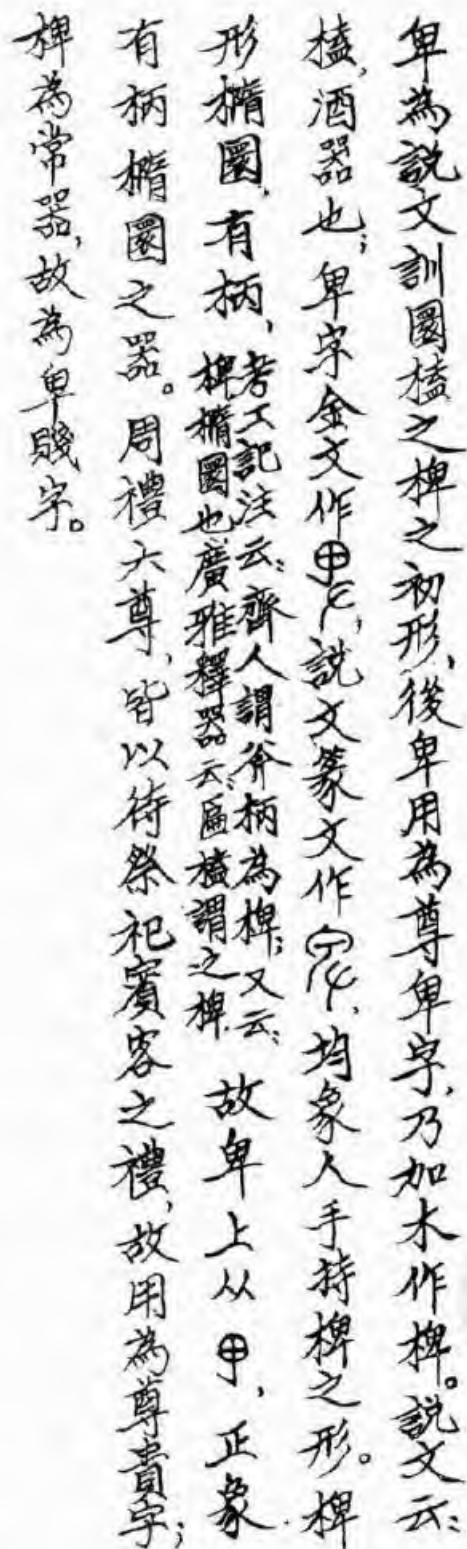 卑為說文訓圜榼之椑之初形,後卑用為尊卑字,乃加木作椑。說文云:
榼,酒器也;卑字金文作,說文篆文作,均象人手持椑之形。椑
形橢圜,有柄,考工記注云:齊人謂斧柄為椑;又云:椑橢圜也廣雅釋器云:匾榼謂之椑.故卑上从,正象
有柄橢圜之器。周禮六尊,皆以待祭祀賓客之禮,故用為尊貴字;
椑為常器,故為卑賤字。